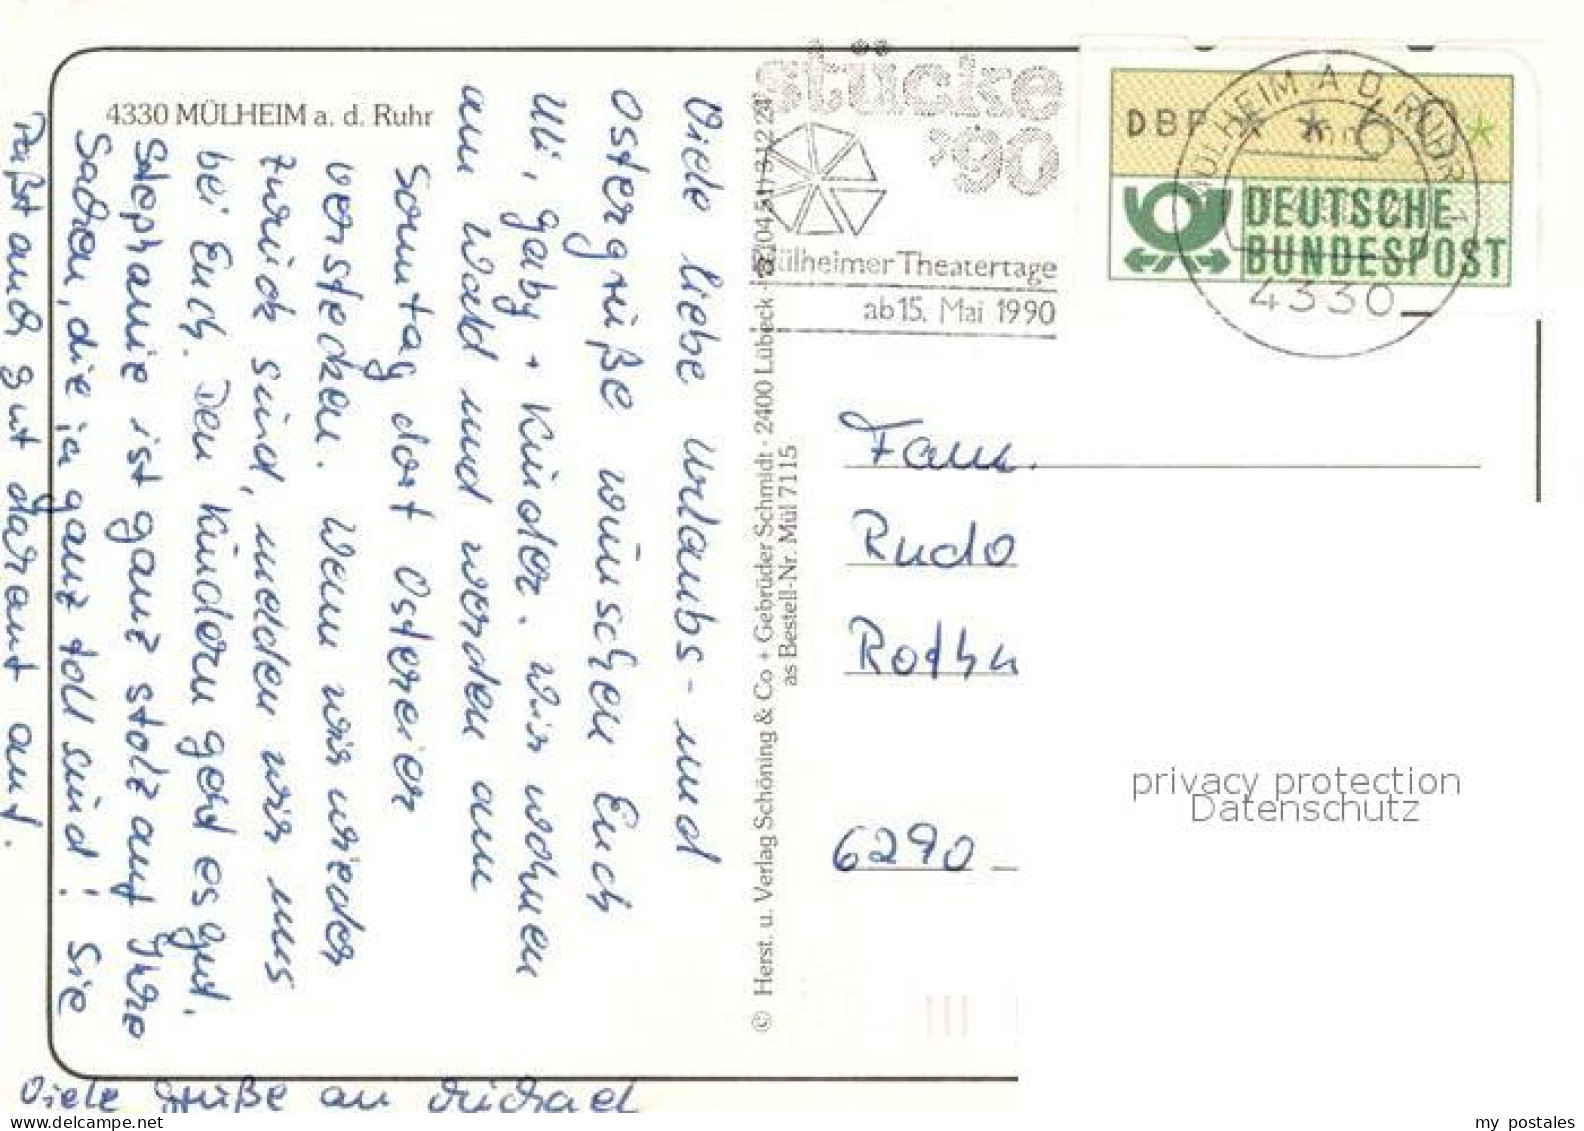 4330 MÜLHEIM a. d. Ruhr
Viele liebe Urlaubs- und
Ostergrüße wünschen Euch
Ulli, Gaby + Kinder. Wir wohnen
am Wald und werden am
Sonntag dort Ostereier
verstecken. Wenn wir wieder
zurück sind, melden wir uns
bei Euch. Den Kindern geht es gut.
Stephanie ist ganz stolz auf Ihre
Sachen, die ja ganz toll sind! Sie
paßt auch gut darauf auf.
Viele Grüße an Michael
© Herst. u. Verlag Schöning & Co + Gebrüder Schmidt · 2400 Lübeck
as Bestell-Nr. Mül 7115
stücke
'90
Mülheimer Theatertage
ab 15. Mai 1990
DBP
60
DEUTSCHE
BUNDESPOST
MÜLHEIM A D RUHR 1
4330
Fam.
Rudo
Rothu
6290
privacy protection
Datenschutz
my postales